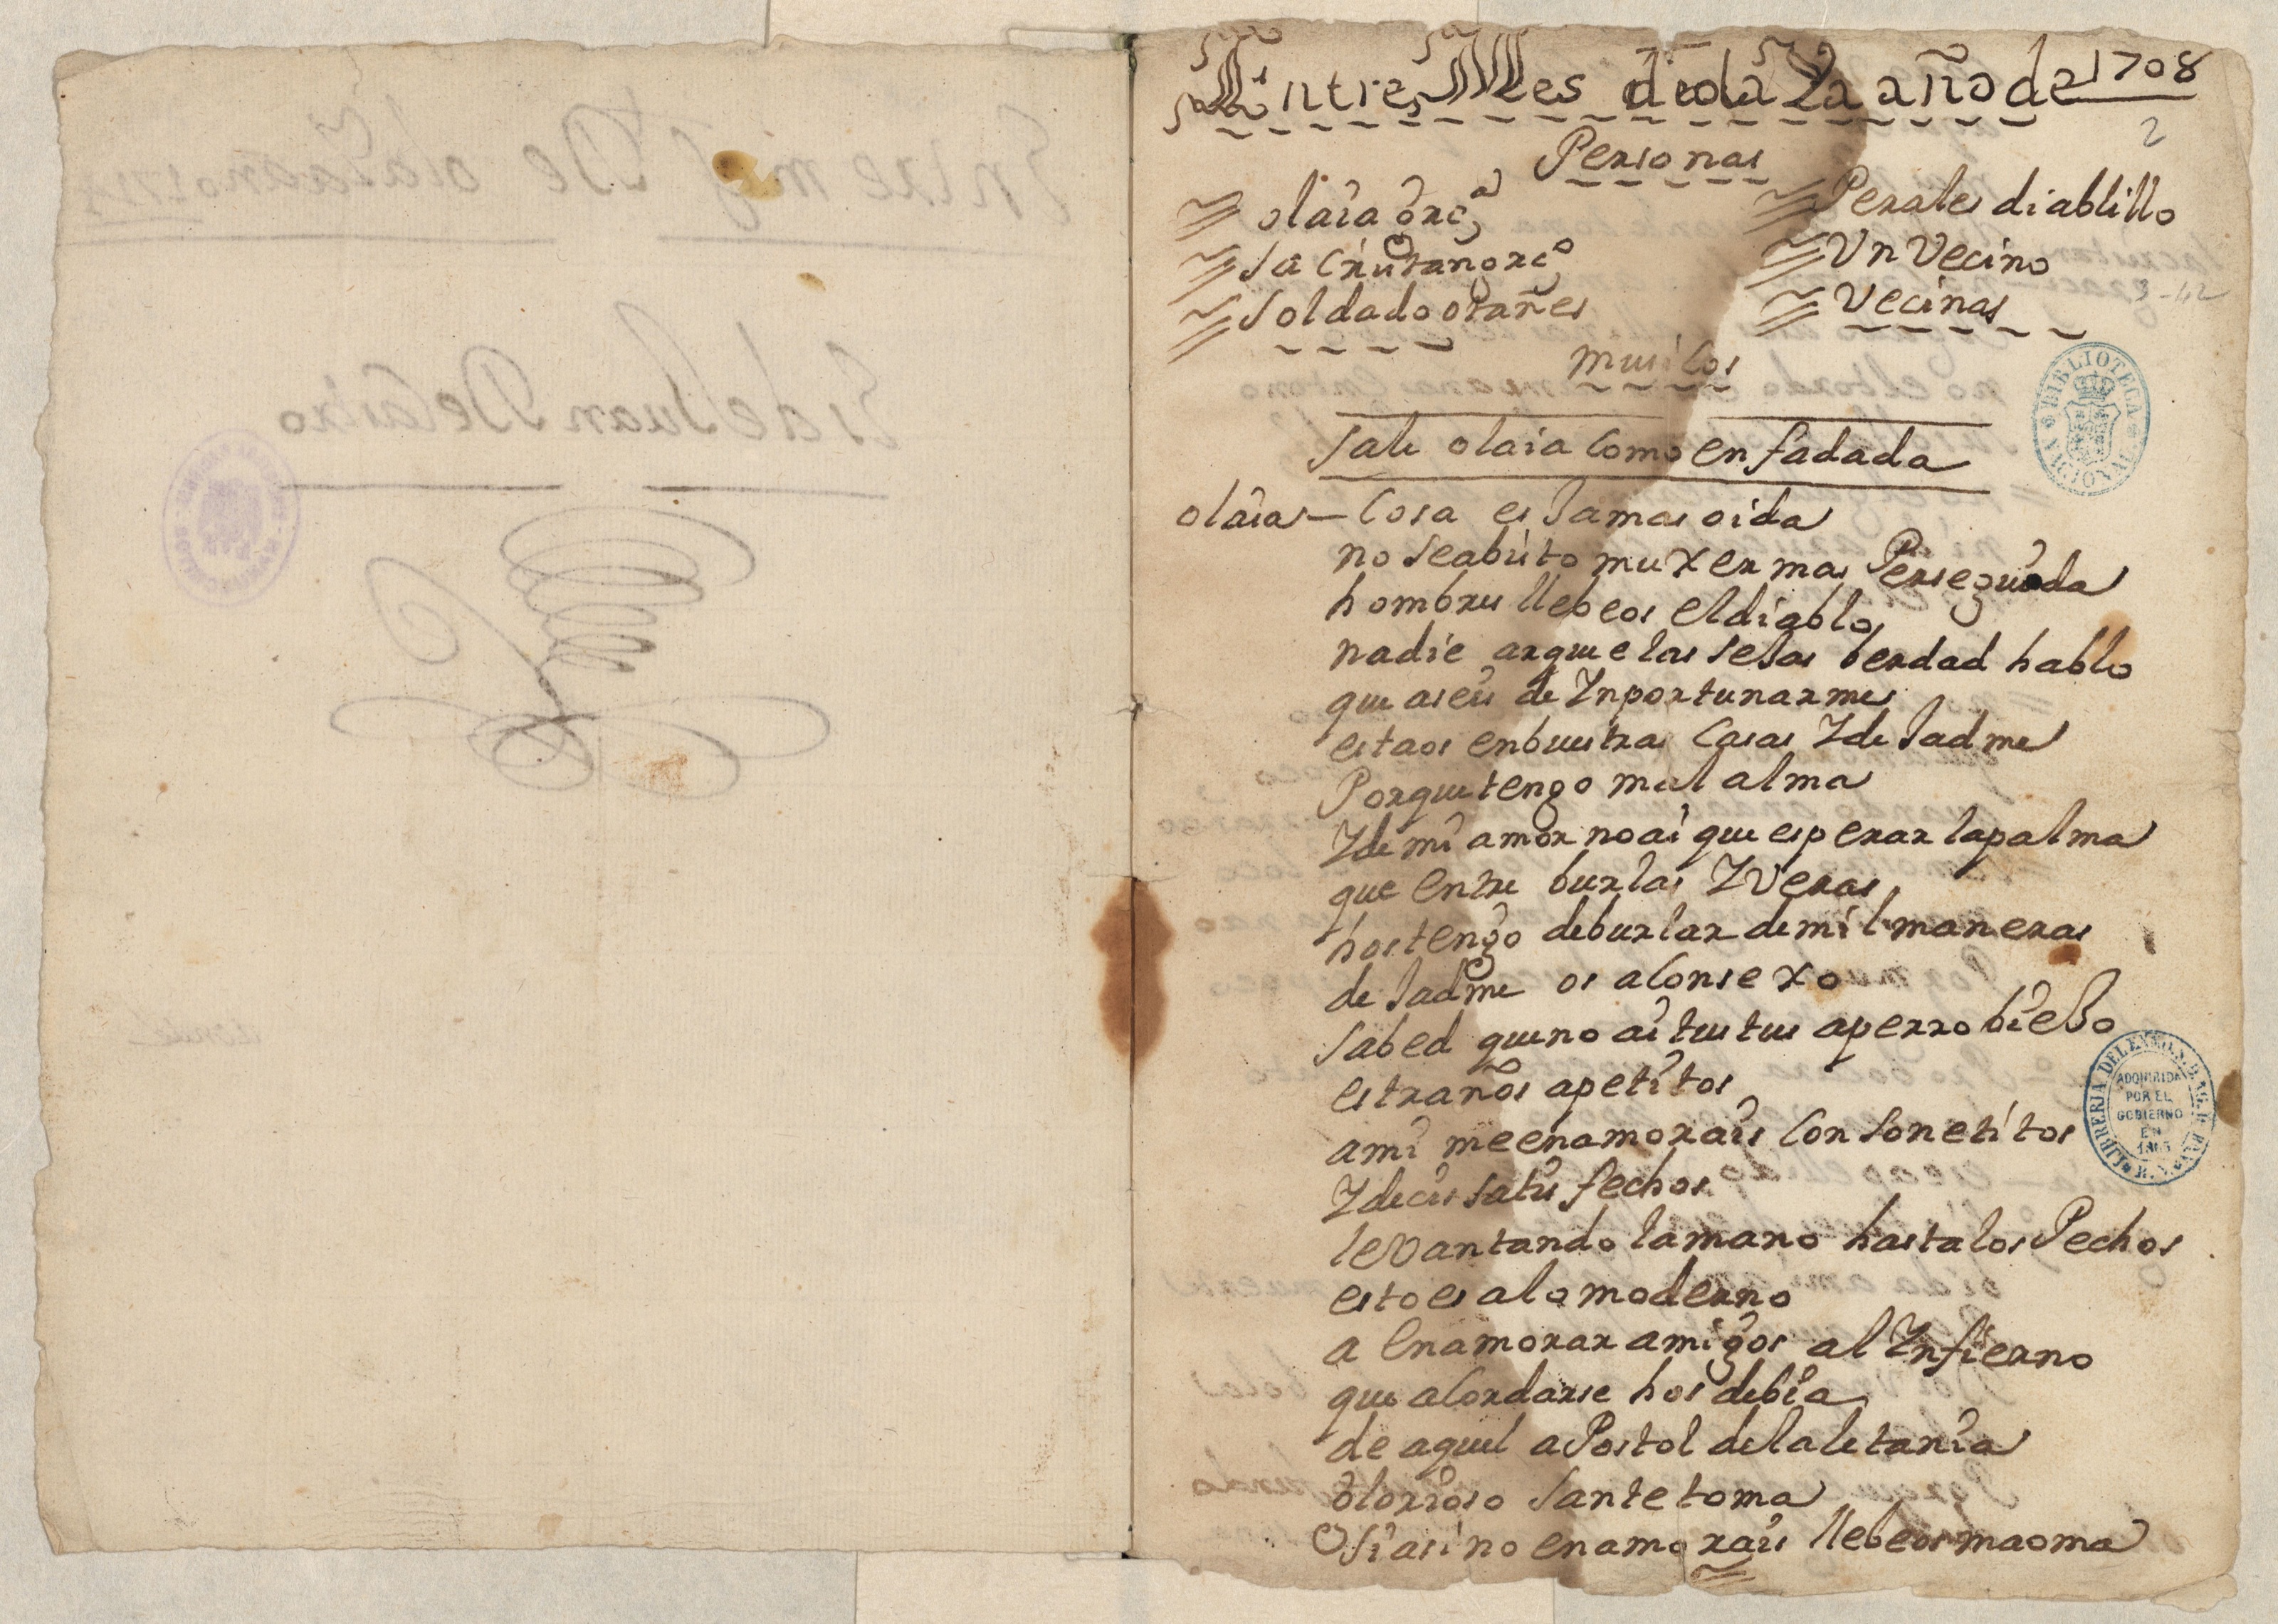 Entremes de olaLla año de 1708
2
Personas
olaia grca
Perales diablillo
Sacristan grco
Un Vecino
Soldado otañes
Vecinas
musicos
sale olaia como enfadada
olaia - Cosa es Jamas oida
no seabisto muxer mas Perseguida
hombres llebeos eldiablo
nadie arquelas sejas berdad hablo
que aseis de Inportunarme
estaos enbuestras Casas Ide Jadme
Porque tengo mal alma
Ide mi amor no ai que esperar lapalma
que entre burlas I Veras
hos tengo deburlar demil maneras
de Jadme os aconsexo
Sabed queno ai tus tus aperro bieJo
estraños apetitos
ami meenamorais Con sonetitos
I decis satis fechos
levantando lamano hasta los Pechos
esto es alo moderno
a Enamorar amigos al Infierno
que acordarse hos debia
de aquel aPostol delaletania
glorioso Santetoma
O si asi no enamorais llebeos maoma
BIBLIOTECA NACIONAL
ADQUIRIDA
POR EL
GOBIERNO
EN